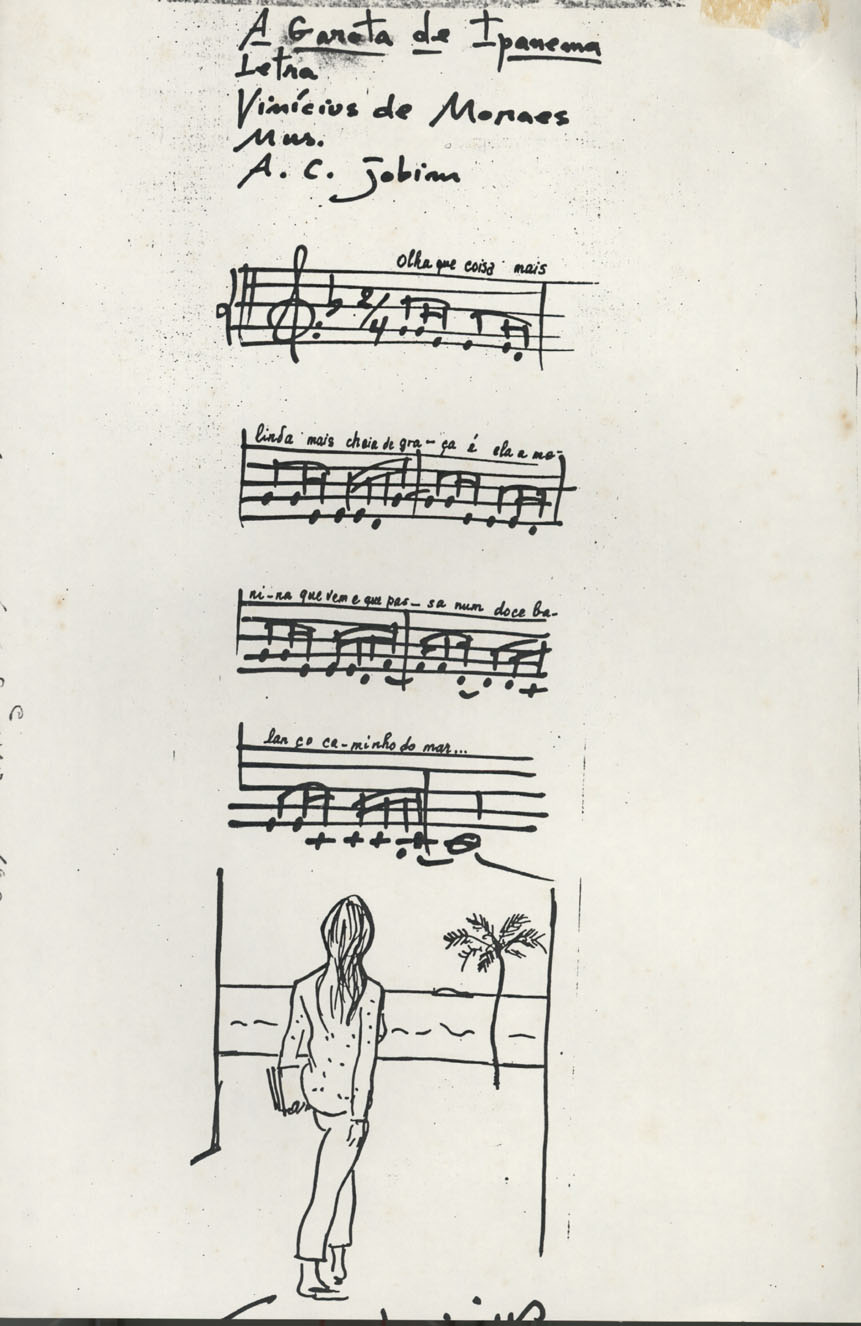 A Garota de Ipanema
Letra
Vinícius de Moraes
Mus.
A. C. Jobim
Olha que coisa mais
2/4
linda mais cheia de gra-ça é ela a me-
ni-na que vem e que pas-sa num doce ba-
lan ço ca-minho do mar...